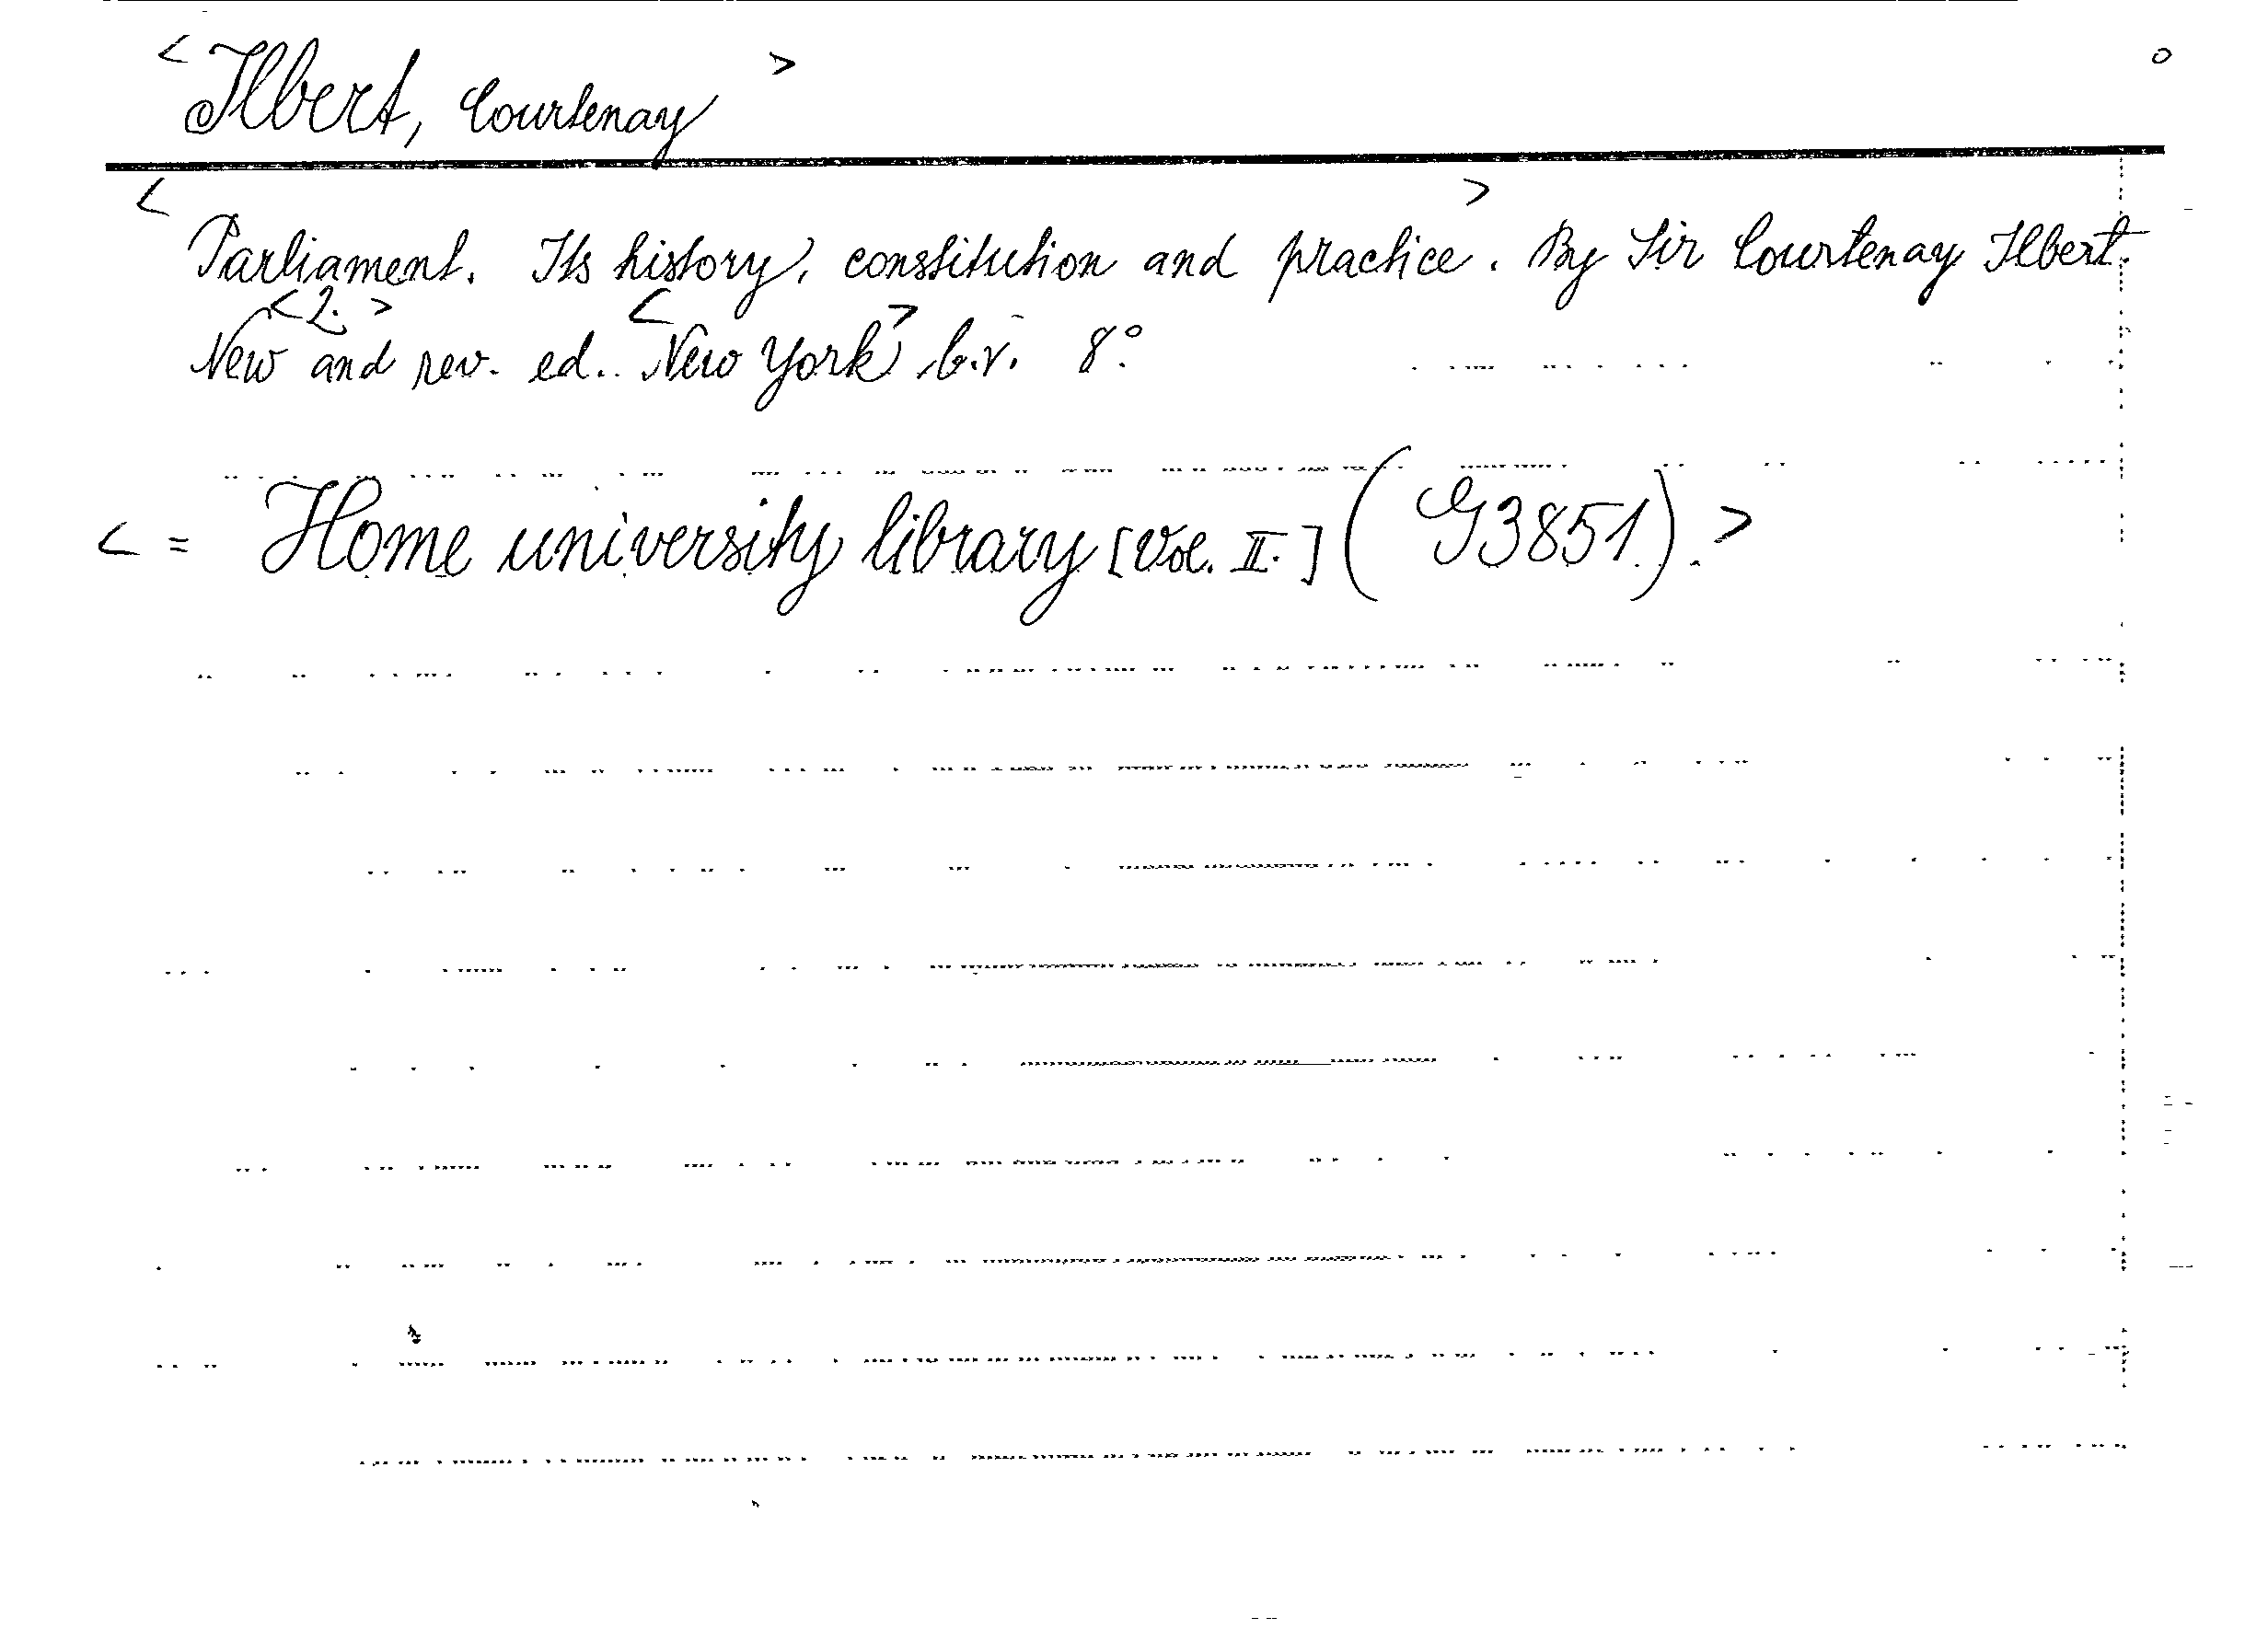 < Ilbert, Courtenay >
< Parliament. Its history, constitution and practice >. By Sir Courtenay Ilbert.
< 2. >
New and rev. ed.. < New York > b.r. 8°.
< = Home university library [Vol. II.] ( G3851.). >